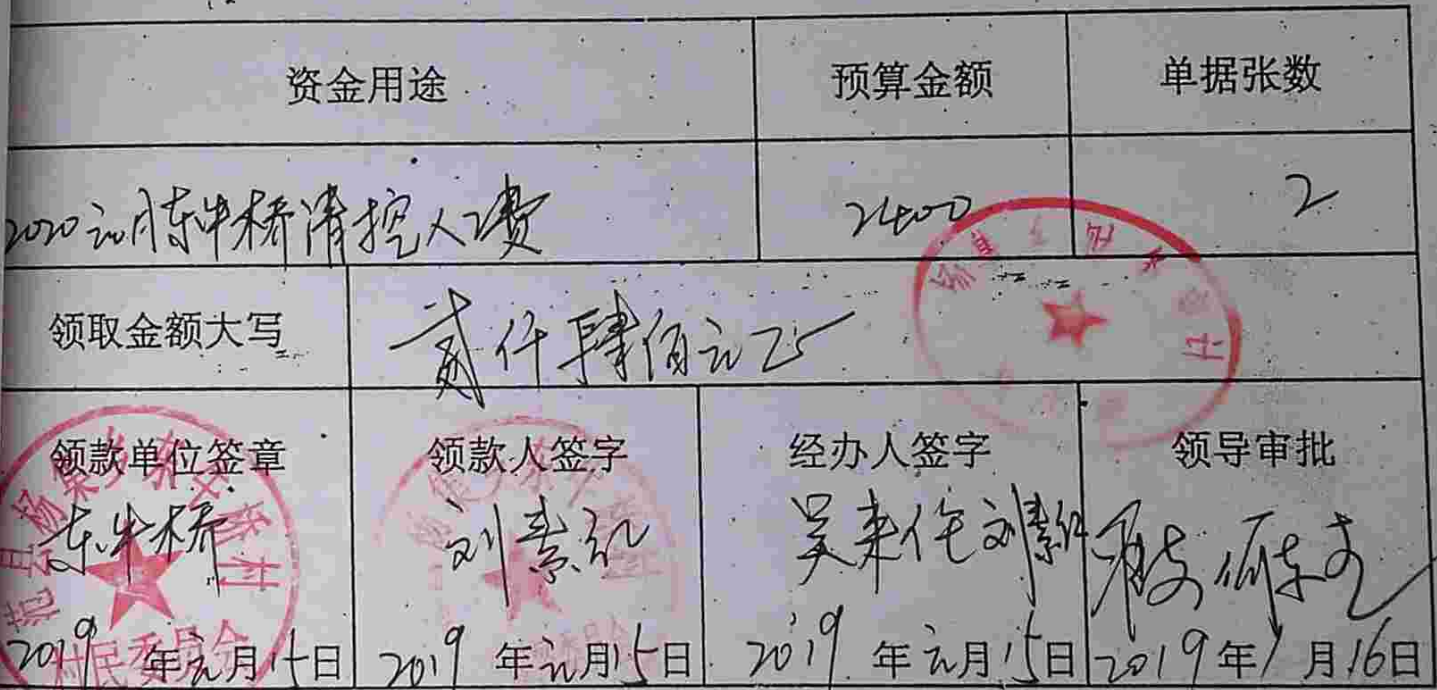 资金用途 预算金额 单据张数
2020元月东牛桥清挖人费 2400 2
领取金额大写 贰仟肆佰元正
领款单位签章 领款人签字 经办人签字 领导审批
东牛桥 刘素红 吴来任 刘素红
2019年元月15日 2019年元月15日 2019年元月15日 2019年1月16日
范县杨集乡东牛桥村
村民委员会